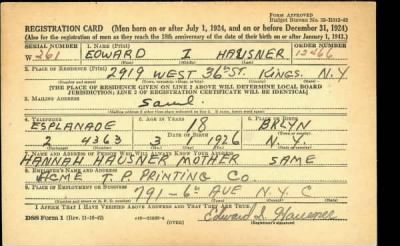 FORM APPROVED
REGISTRATION CARD (Men born on or after July 1, 1924, and on or before December 31, 1924)
(Also for the registration of men as they reach the 18th anniversary of the date of their birth on or after January 1, 1943.)
SERIAL NUMBER 1. NAME (Print) ORDER NUMBER
W 261 EDWARD I HAUSNER 12466
2. PLACE OF RESIDENCE
2919 WEST 36th ST. KINGS. N.Y.
[THE PLACE OF RESIDENCE GIVEN ON LINE 2 ABOVE WILL DETERMINE LOCAL BOARD
JURISDICTION; LINE 2 OF REGISTRATION CERTIFICATE WILL BE IDENTICAL]
3. MAILING ADDRESS
Same
4. TELEPHONE 5. AGE IN YEARS 6. PLACE OF BIRTH
ESPLANADE 18 BKLYN
DATE OF BIRTH
2 4363 3 1926 N.Y.
7. NAME AND ADDRESS OF PERSON WHO WILL ALWAYS KNOW YOUR ADDRESS
HANNAH HAUSNER MOTHER SAME
8. EMPLOYER'S NAME AND ADDRESS
ACME T. P. PRINTING CO.
9. PLACE OF EMPLOYMENT OR BUSINESS
791-6th AVE N.Y.C
I AFFIRM THAT I HAVE VERIFIED ABOVE ANSWERS AND THAT THEY ARE TRUE.
DSS Form 1 (OVER) Edward I. Hausner